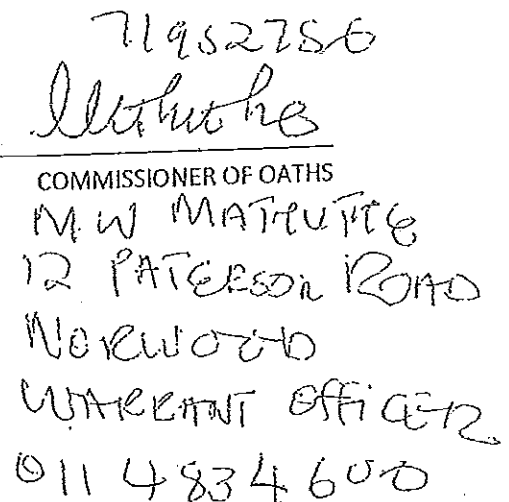 71952756
COMMISSIONER OF OATHS
MW MATHUTHE
12 PATERSON ROAD
NORWOOD
WARRANT OFFICER
011 4834600